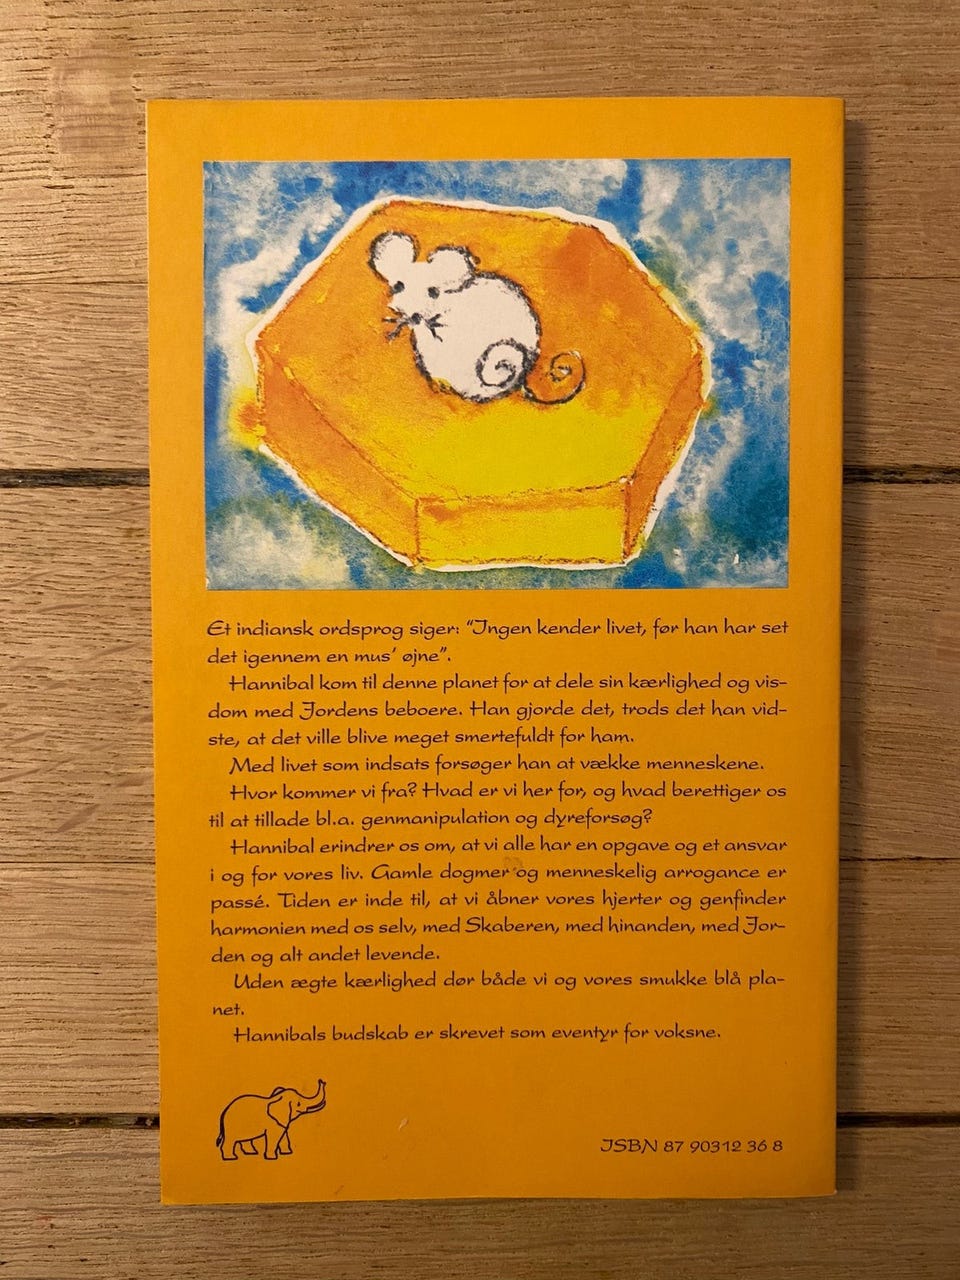 Et indiansk ordsprog siger: "Ingen kender livet, før han har set
det igennem en mus' øjne".
Hannibal kom til denne planet for at dele sin kærlighed og vis-
dom med Jordens beboere. Han gjorde det, trods det han vid-
ste, at det ville blive meget smertefuldt for ham.
Med livet som indsats forsøger han at vække menneskene.
Hvor kommer vi fra? Hvad er vi her for, og hvad berettiger os
til at tillade bl.a. genmanipulation og dyreforsøg?
Hannibal erindrer os om, at vi alle har en opgave og et ansvar
i og for vores liv. Gamle dogmer og menneskelig arrogance er
passé. Tiden er inde til, at vi åbner vores hjerter og genfinder
harmonien med os selv, med Skaberen, med hinanden, med Jor-
den og alt andet levende.
Uden ægte kærlighed dør både vi og vores smukke blå pla-
net.
Hannibals budskab er skrevet som eventyr for voksne.
ISBN 87 90312 36 8